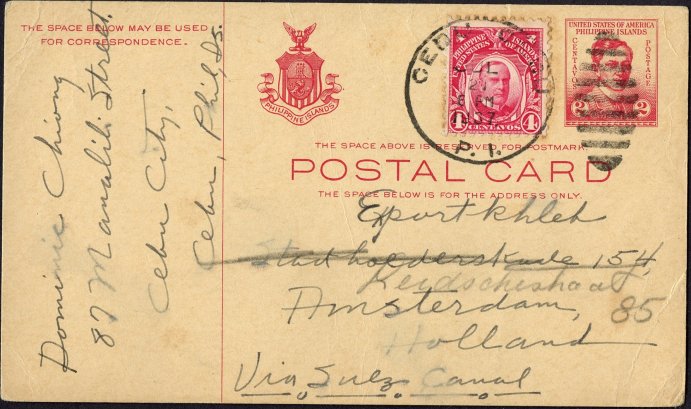 THE SPACE BELOW MAY BE USED
FOR CORRESPONDENCE.
Dominic Chiong
87 Manalili Street
Cebu City,
Cebu, Phil. Is.
PHILIPPINE ISLANDS
PHILIPPINE ISLANDS
UNITED STATES OF AMERICA
4 CENTAVOS 4
CEBU
P. I.
UNITED STATES OF AMERICA
PHILIPPINE ISLANDS
CENTAVOS
POSTAGE
2 2
THE SPACE ABOVE IS RESERVED FOR POSTMARK.
POSTAL CARD
THE SPACE BELOW IS FOR THE ADDRESS ONLY.
Stadhoederskade 154,
85
Amsterdam,
Holland
Via Suez Canal